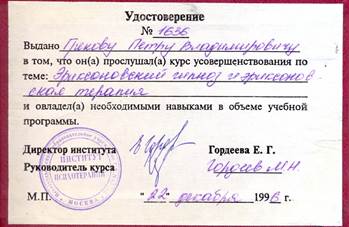 Удостоверение
№ 1636
Выдано Гикову Петру Владимировичу
в том, что он(а) прослушал(а) курс усовершенствования по
теме: Эриксоновский гипноз и эриксонов
ская терапия
и овладел(а) необходимыми навыками в объеме учебной
программы.
Директор института Гордеева Е. Г.
Руководитель курса Гордеев М.Н.
ИНСТИТУТ
ПСИХОТЕРАПИИ
МОСКВА
М.П. "22" декабря 1998 г.